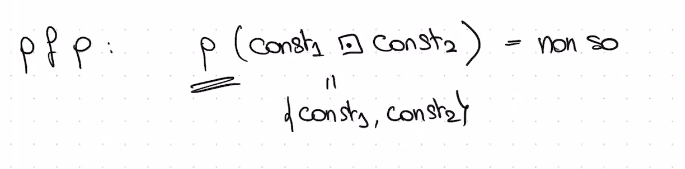 pfp: p (const1 ⊡ const2) = non so
=
{const1, const2}